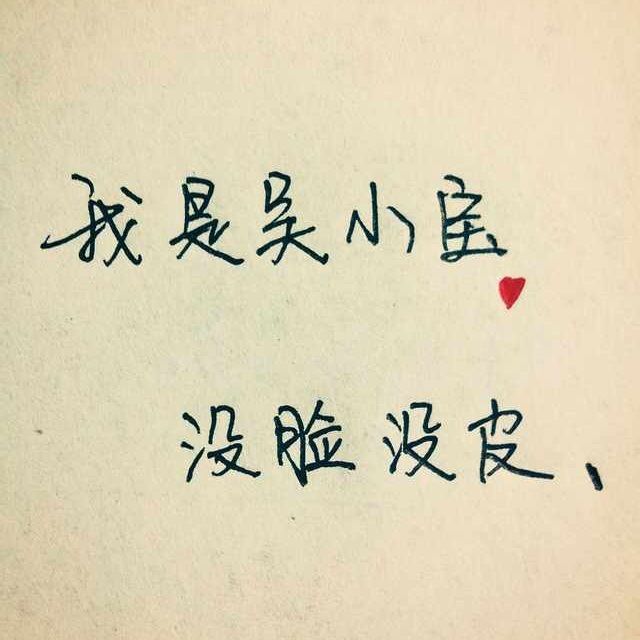 我是吴小宝
没脸没皮、